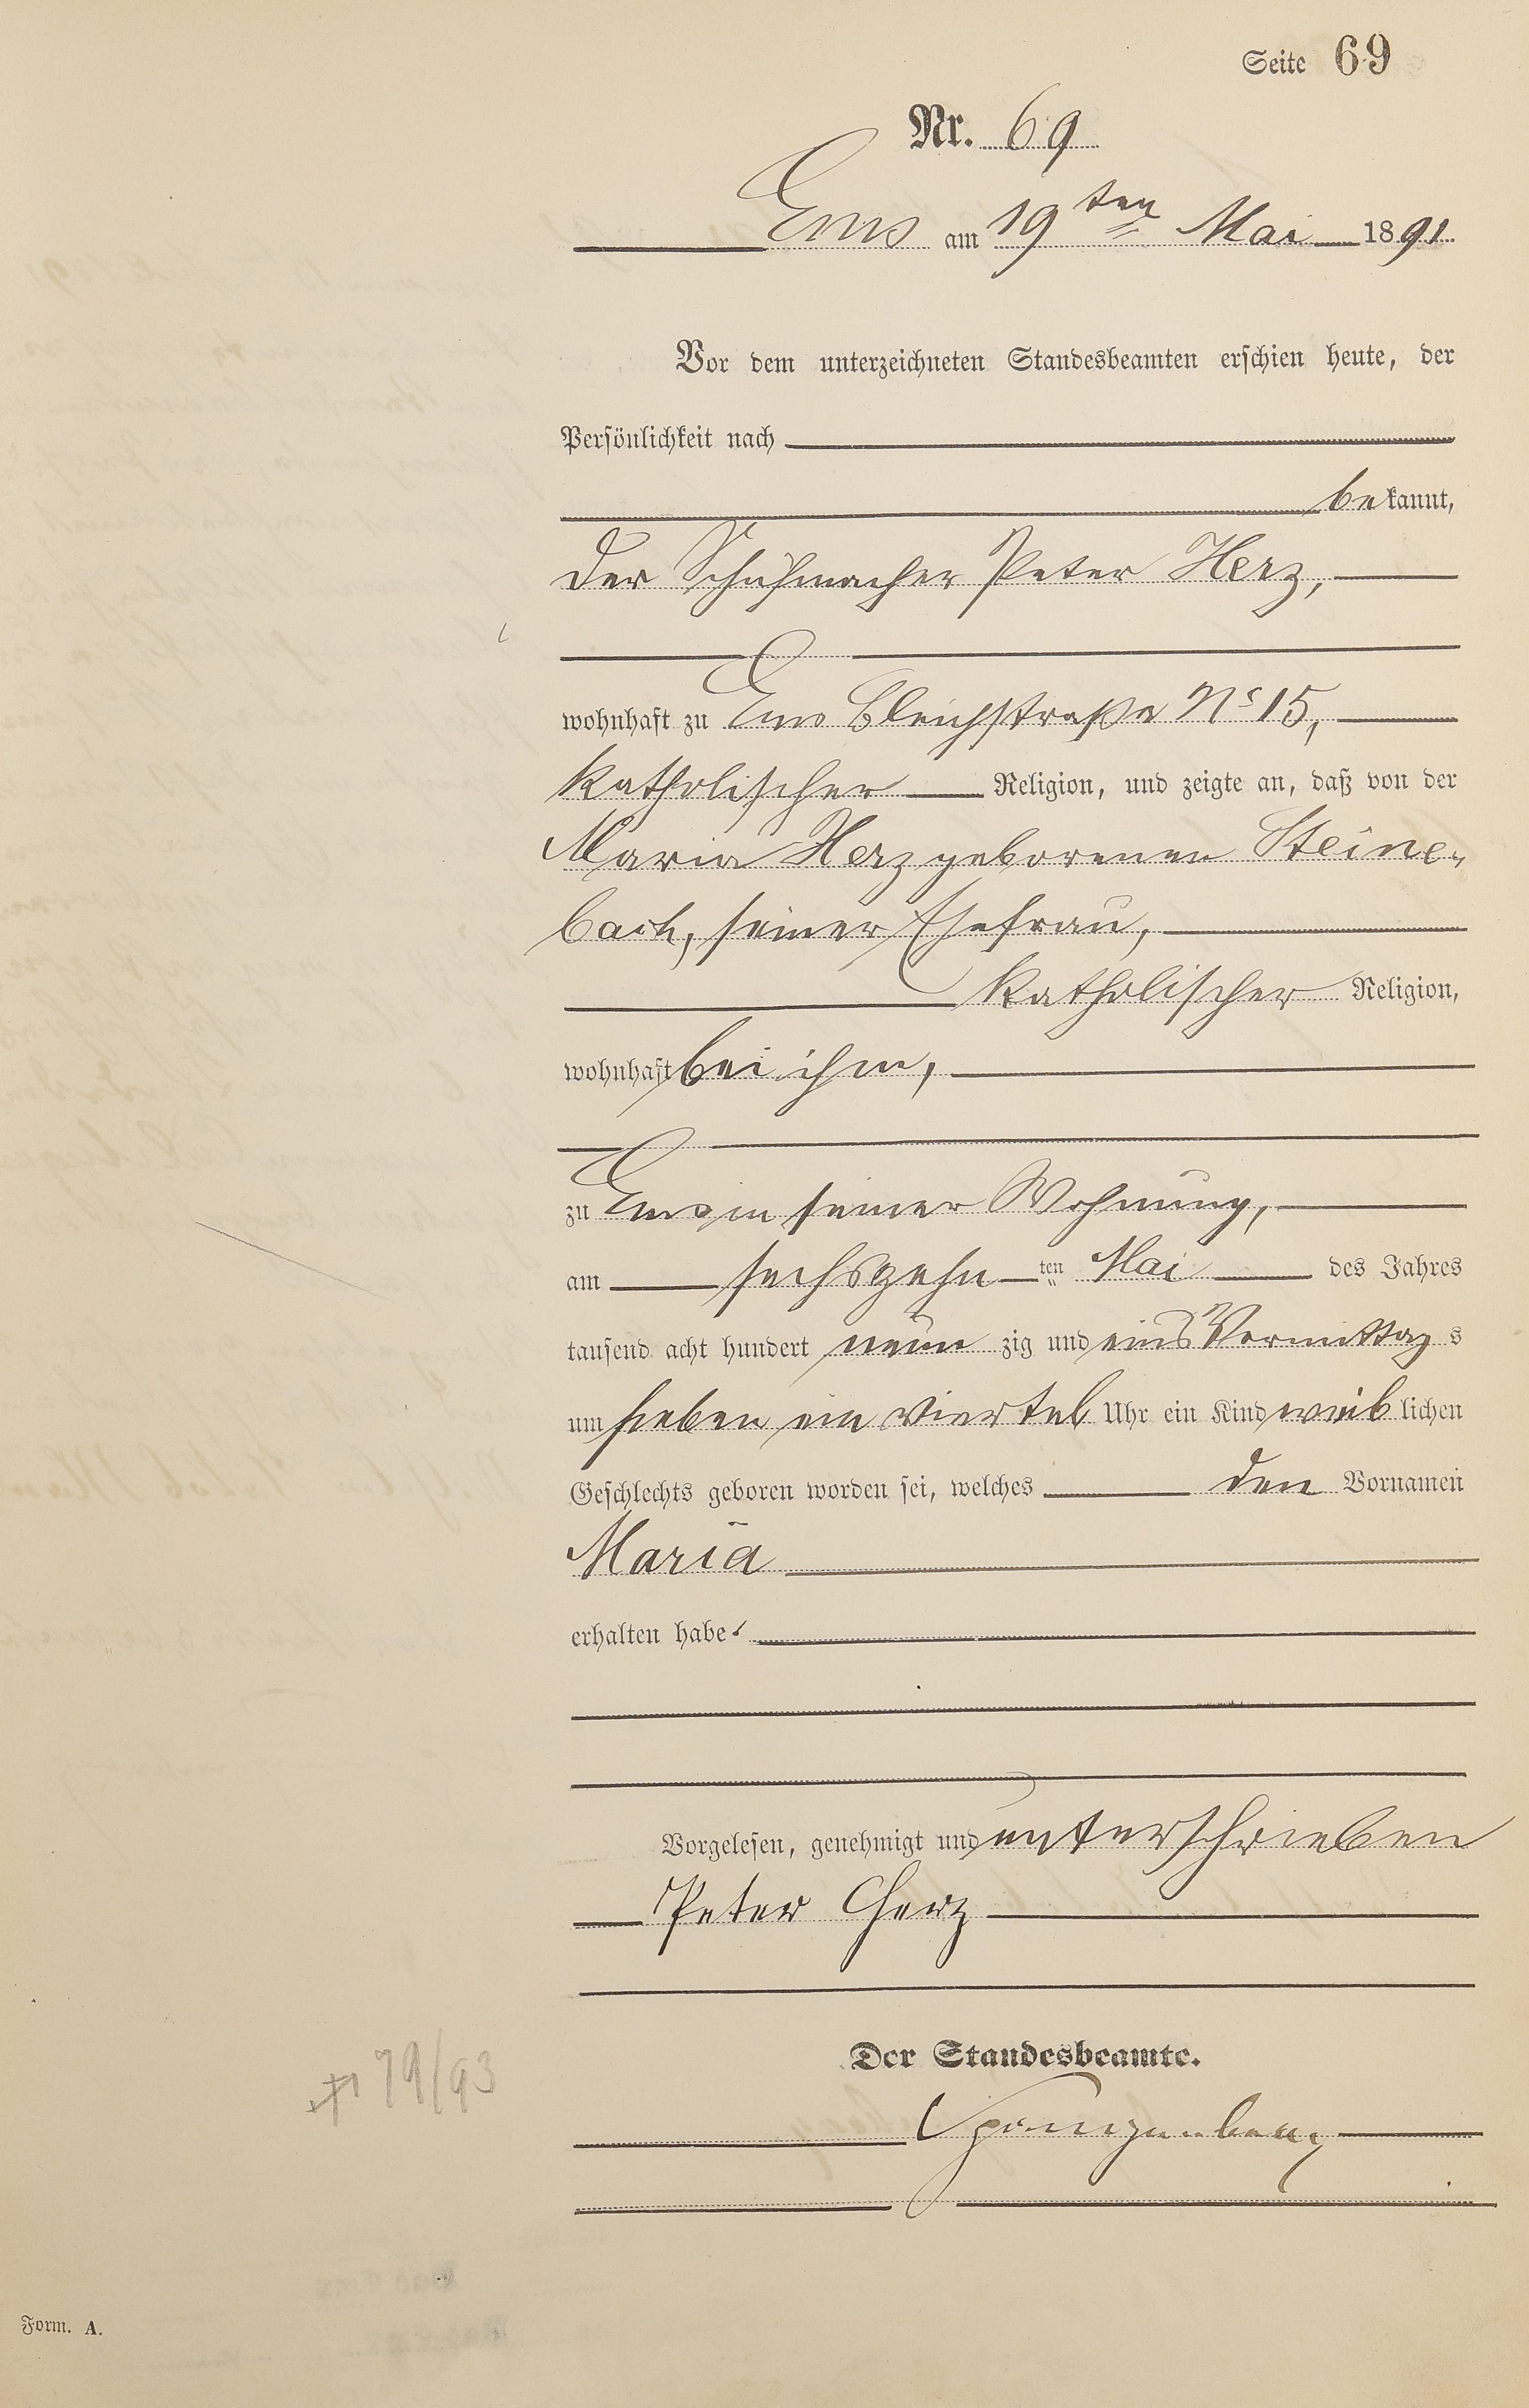 Seite 69
Nr. 69
Ems am 19ten Mai 1891
Vor dem unterzeichneten Standesbeamten erschien heute, der
Persönlichkeit nach
bekannt,
der Schuhmacher Peter Herz,
wohnhaft zu Ems Bleichstraße No 15,
katholischer Religion, und zeigte an, daß von der
Maria Herz geborenen Steine-
bach, seiner Ehefrau,
katholischer Religion,
wohnhaft bei ihm,
zu Ems in seiner Wohnung,
am sechszehnten Mai des Jahres
tausend acht hundert neunzig und eins Vormittags
um sieben ein viertel Uhr ein Kind weiblichen
Geschlechts geboren worden sei, welches den Vornamen
Maria
erhalten habe.
Vorgelesen, genehmigt und unterschrieben
Peter Herz
Der Standesbeamte.
Spangenberg
† 79/93
Form. A.